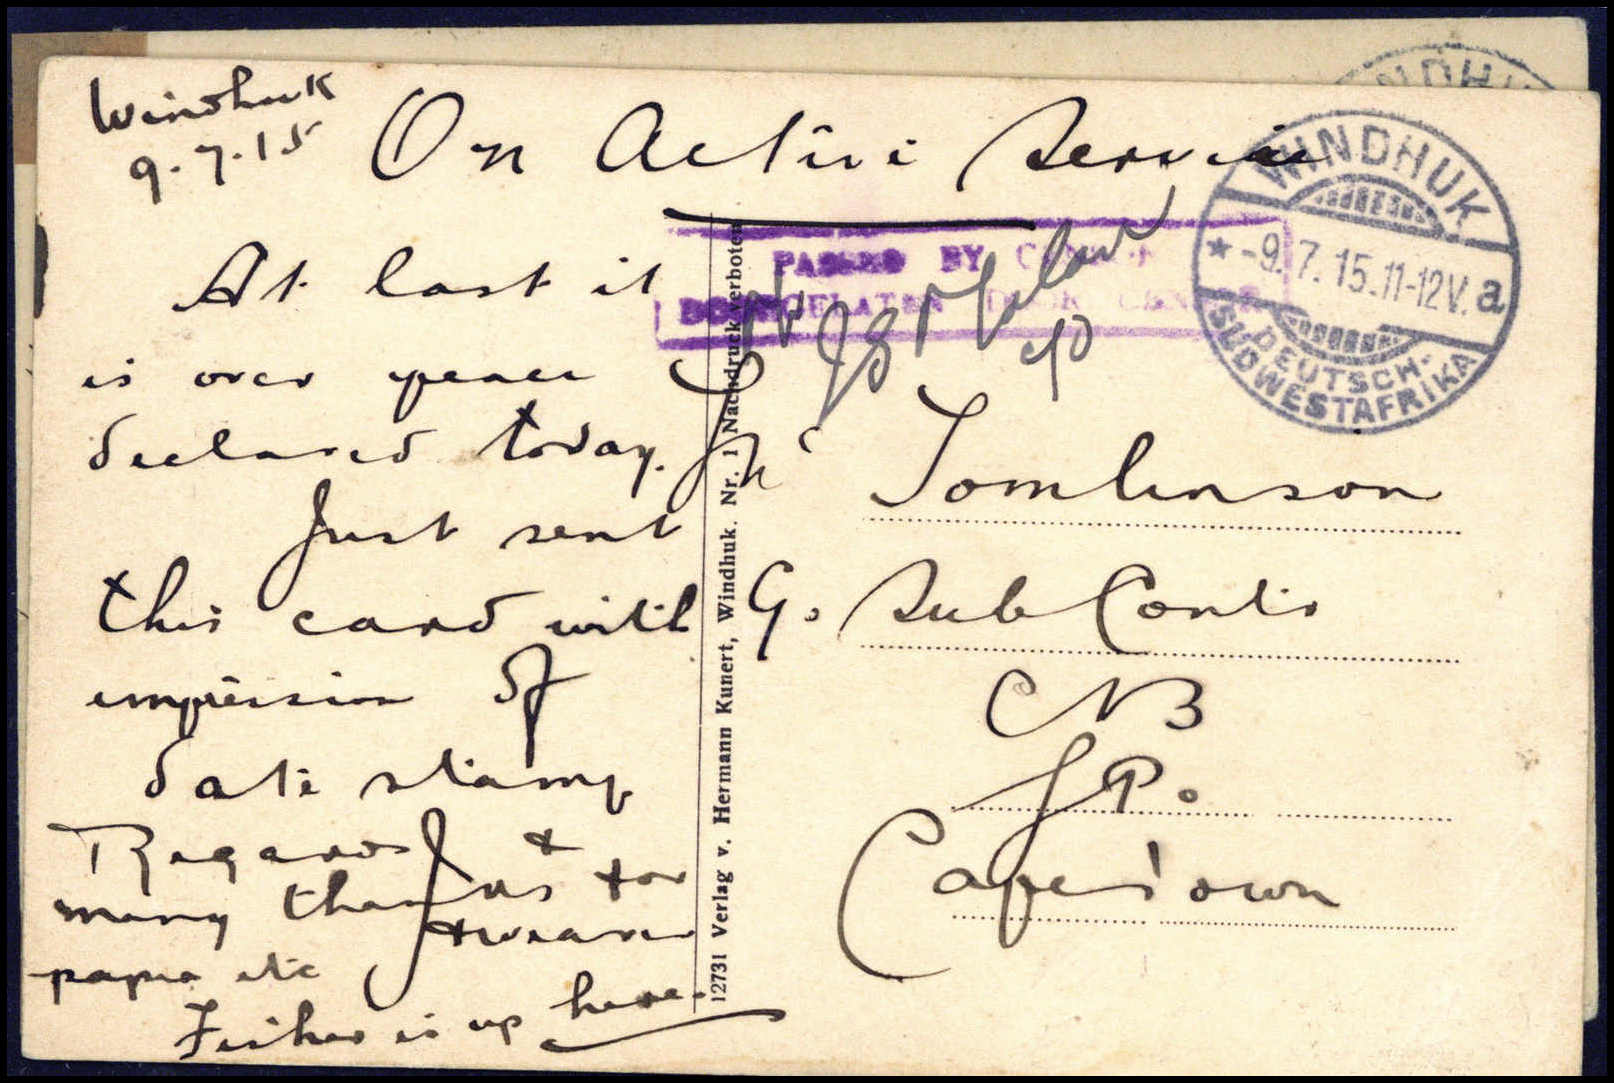 Windhuk
9.7.15
On Active Service
At last it
is over peace
declared today.
Just sent
this card with
impression of
date stamp
Regards &
many thanks for
papers etc
Fisher is up here.
PASSED BY CENSOR
DOORGELATEN DOOR CENSOR
c/o
WINDHUK
* -9.7.15.11-12V. a
DEUTSCH-
SÜDWESTAFRIKA
Tomlinson
G. Sub Contr
CNB
G P.
Cape Town
12731 Verlag v. Hermann Kunert, Windhuk. Nr. 1 Nachdruck verboten
INDHU